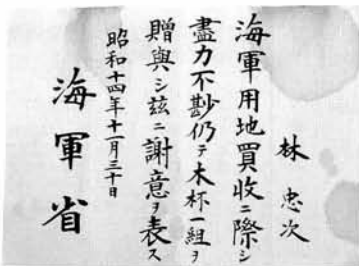 林忠次
海軍用地買收ニ際シ
盡力不尠仍テ木杯一組ヲ
贈與シ玆ニ謝意ヲ表ス
昭和十四年十一月三十日
海軍省